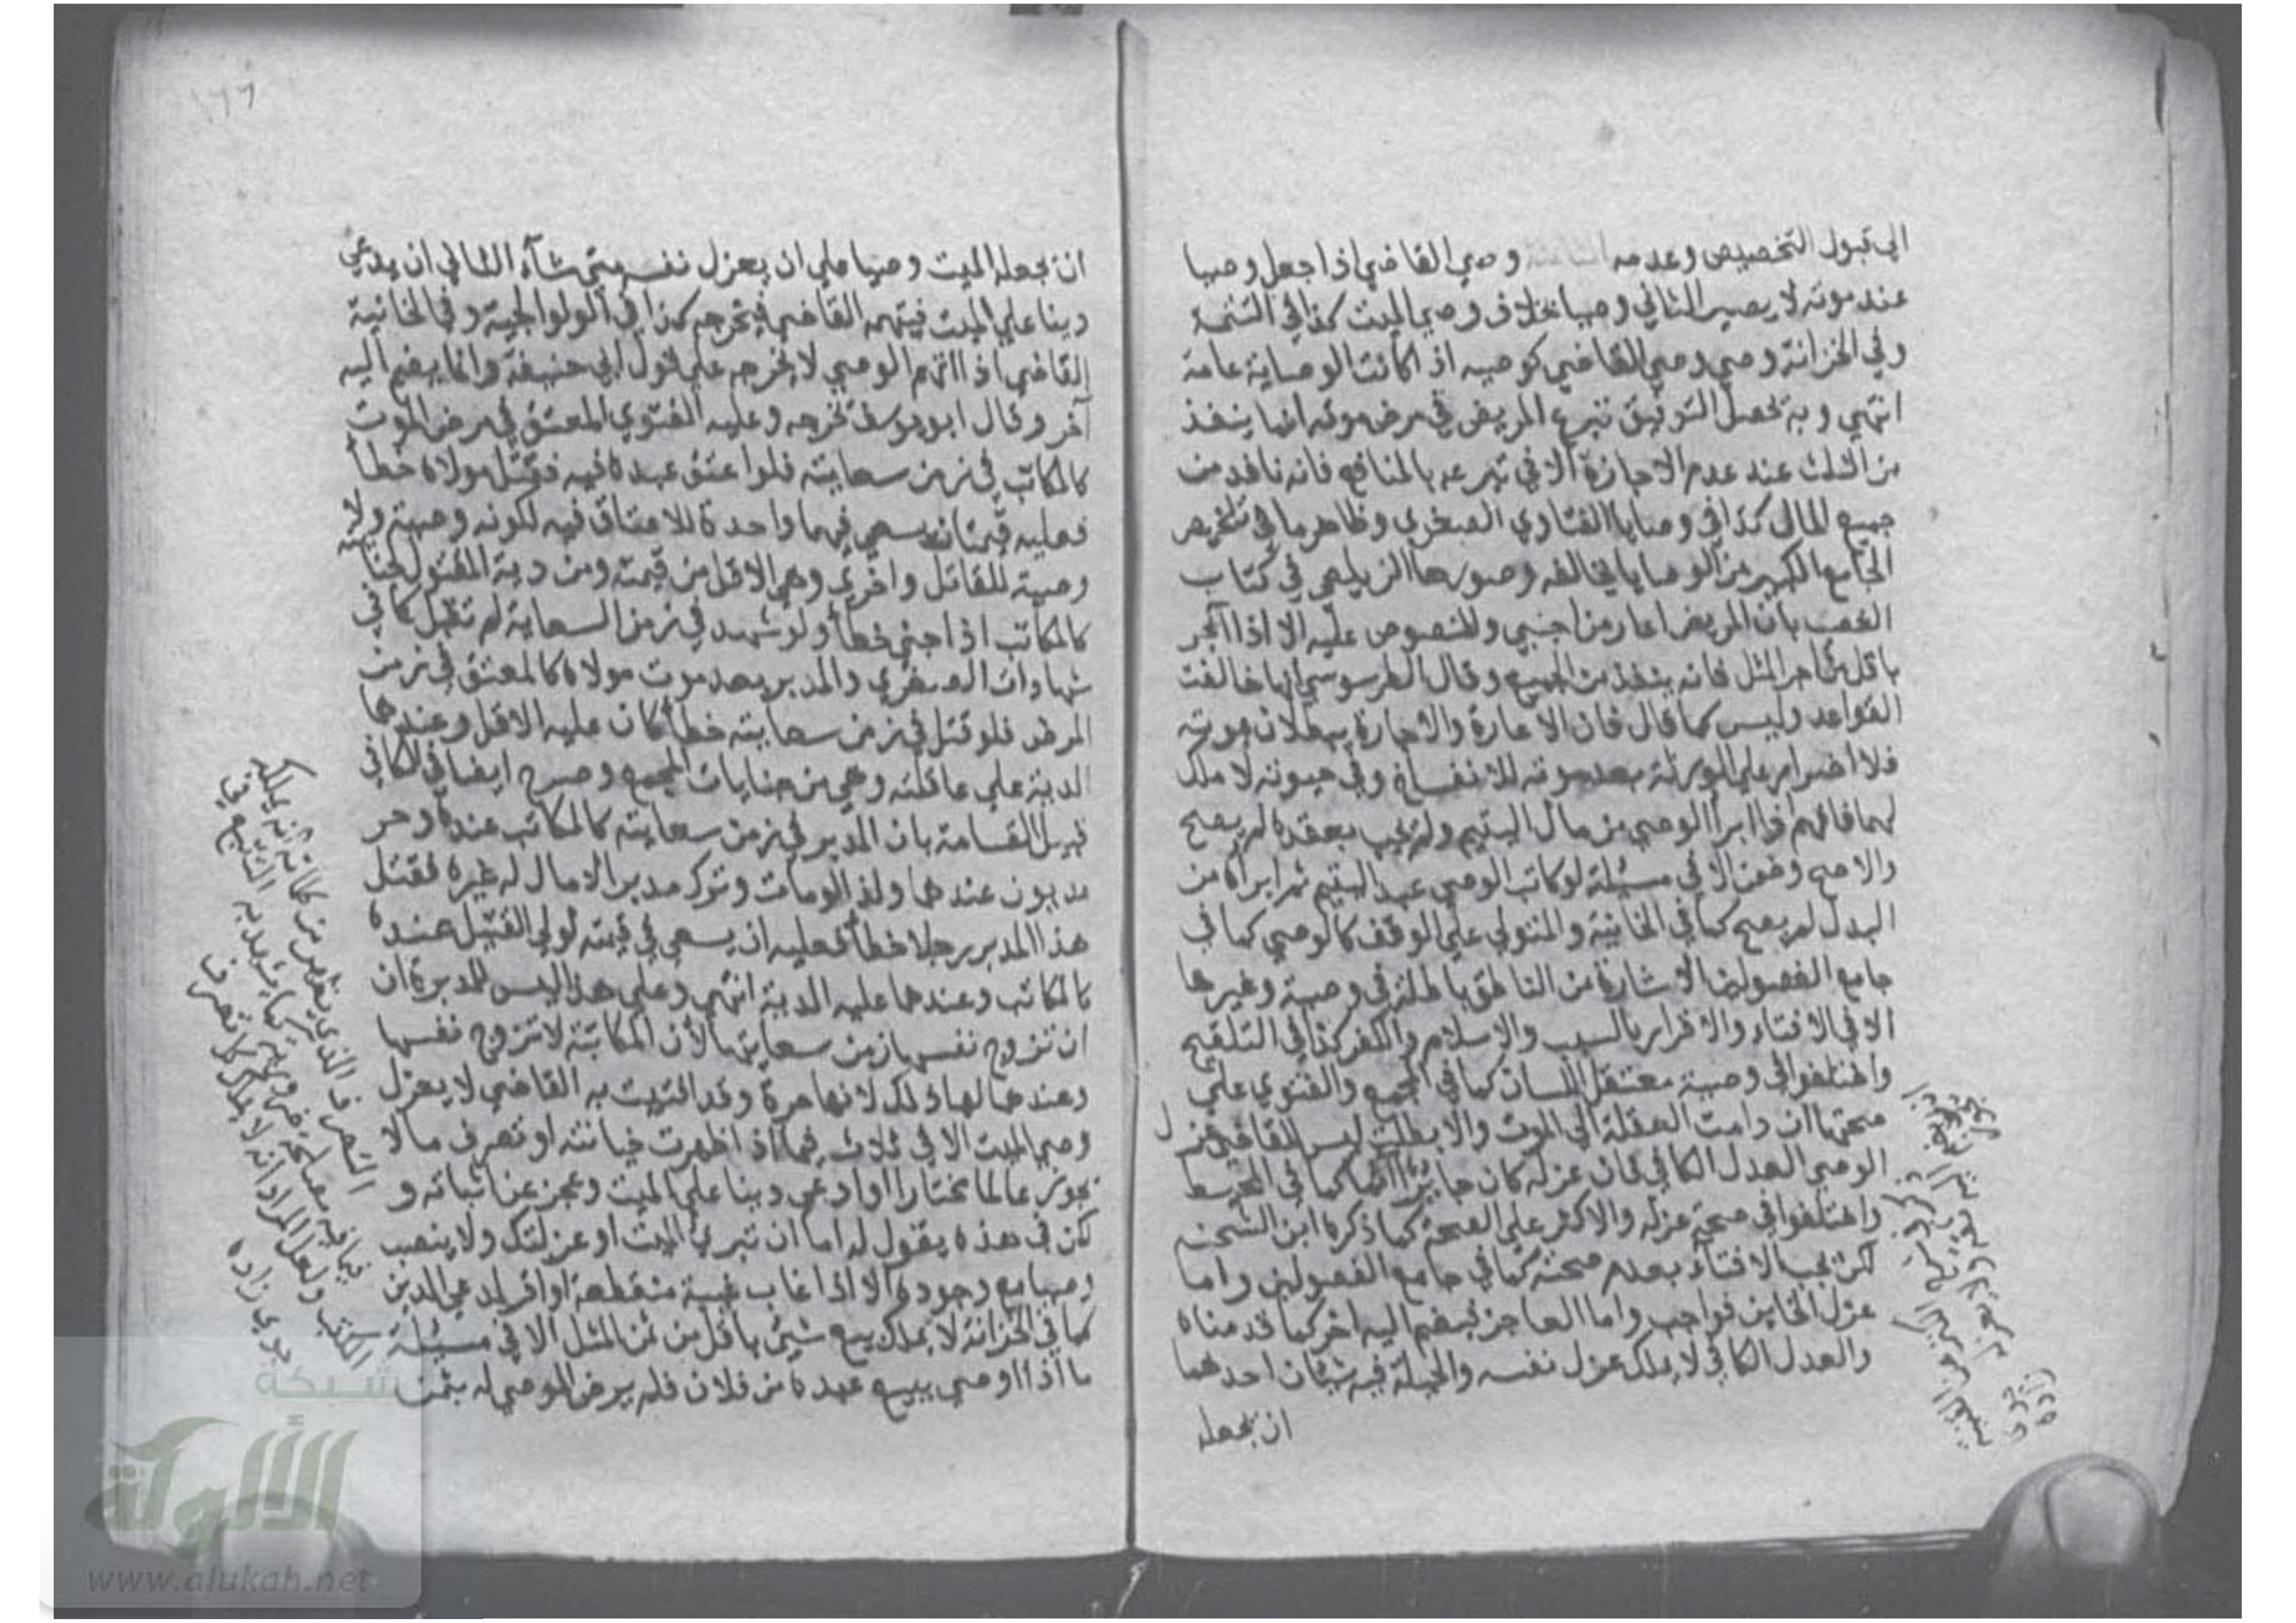 الي قبول التخصيص وعدمه الثامنة وصي القاضي اذا جعل وصيا
عند موته لا يصير الثاني وصيا بخلاف وصي الميت كذا في التتمة
وفي الخزانة وصي وصي القاضي كوصيه اذا كانت الوصاية عامة
انتهي وبه يحصل التوفيق تبرع المريض في مرض موته انما ينفذ
من الثلث عند عدم الاجازة الا في تبرعه بالمنافع فانه نافذ من
جميع المال كذا في وصايا الفتاوي الصغري وظاهر ما في تلخيص
الجامع الكبير من الوصايا يخالفه وصورها الزيلعي في كتاب
الغصب بان المريض اعار من اجنبي والمنصوص عليه الا اذا آجر
باقل من اجر المثل فانه ينفذ من الجميع وقال الطرسوسي انها خالفت
القواعد وليس كما قال فان الاعارة والاجارة يبطلان بموته
فلا اضرار علي الورثة بعد موته للانفساخ وفي حيوته لا ملك
لهم فافهم اذا ابرأ الوصي من مال اليتيم ولم يجب بعقده لم يصح
والا صح وضمن الا في مسئلة لو كاتب الوصي عبد اليتيم ثم ابراه من
البدل لم يصح كما في الخانية والمتولي علي الوقف كالوصي كما في
جامع الفصولين الاشارة من الناطق باطلة في وصية وغيرها
الا في الافتاء والاقرار بالنسب والاسلام والكفر كذا في التلقيح
واختلفوا في وصية معتقل اللسان كما في المجمع والفتوي علي
صحتها ان دامت العقلة الي الموت والا بطلت ليس للقاضي عزل
الوصي العدل الكافي فان عزله كان جايرا آثما كما في المحيط
واختلفوا في صحة عزله والاكثر علي الصحة كما ذكره ابن الشحنة
لكن يجب الافتاء بعدم صحته كما في جامع الفصولين واما
عزل الخاين فواجب واما العاجز فيضم اليه اخر كما قدمناه
والعدل الكافي لا يملك عزل نفسه والحيلة فيه شيئان احدهما
ان يجعله
١٦٦
ان يجعله الميت وصيا علي ان يعزل نفسه متي شآء الثاني ان يدعي
دينا علي الميت فيتهمه القاضي فيخرجه كذا في الولوالجية وفي الخانية
القاضي اذا اتهم الوصي لا يخرجه علي قول ابي حنيفة وانما يضم اليه
آخر وقال ابو يوسف يخرجه وعليه الفتوي المعتق في مرض الموت
كالمكاتب في زمن سعايته فلو اعتق عبده فيه فقتل مولاه خطأ
فعليه قيمتان يسعي فيهما واحدة للاعتاق فيه لكونه وصية ولا
وصية للقاتل واخري وهي الاقل من قيمته ومن دية المقتول لجنايته
كالمكاتب اذا جني خطأ ولو شهد في زمن السعاية لم تقبل كما في
شهادات الصغري والمدبر بعد موت مولاه كالمعتق في زمن
المرض فلو قتل في زمن سعايته خطأ كان عليه الاقل وعندهما
الدية علي عاقلته وهي من جنايات المجمع وصرح ايضا في الكافي
قبيل القسامة بان المدبر في زمن سعايته كالمكاتب عنده وحر
مديون عندهما ولذا لو مات وترك مدبرا لا مال له غيره فقتل
هذا المدبر رجلا خطأ فعليه ان يسعي في قيمته لولي القتيل عنده
كالمكاتب وعندهما عليه الدية انتهي وعلي هذا ليس للمدبرة ان
ان تزوج نفسها زمن سعايتها لأن المكاتبة لا تزوج نفسها
وعندهما لها ذلك لانها حرة وقد افتيت به القاضي لا يعزل
وصي الميت الا في ثلاث فيما اذا ظهرت خيانته او تصرف ما لا
يجوز عالما مختارا او ادعي دينا علي الميت وعجز عن اثباته و
لكن في هذه يقول له اما ان تبرئ الميت او عزلتك ولا ينصب
وصيا مع وجوده الا اذا غاب غيبة منقطعة او اقر لمدعي الدين
كما في الخزانة لا يملك بيع شيئ باقل من ثمن المثل الا في مسئلة
ما اذا اوصي ببيع عبده من فلان فلم يرض الموصي له بثمن
الكتب ولعل المراد انه لا يملك كل تصرف
جوي زاده
شبكة
الألوكة
www.alukah.net